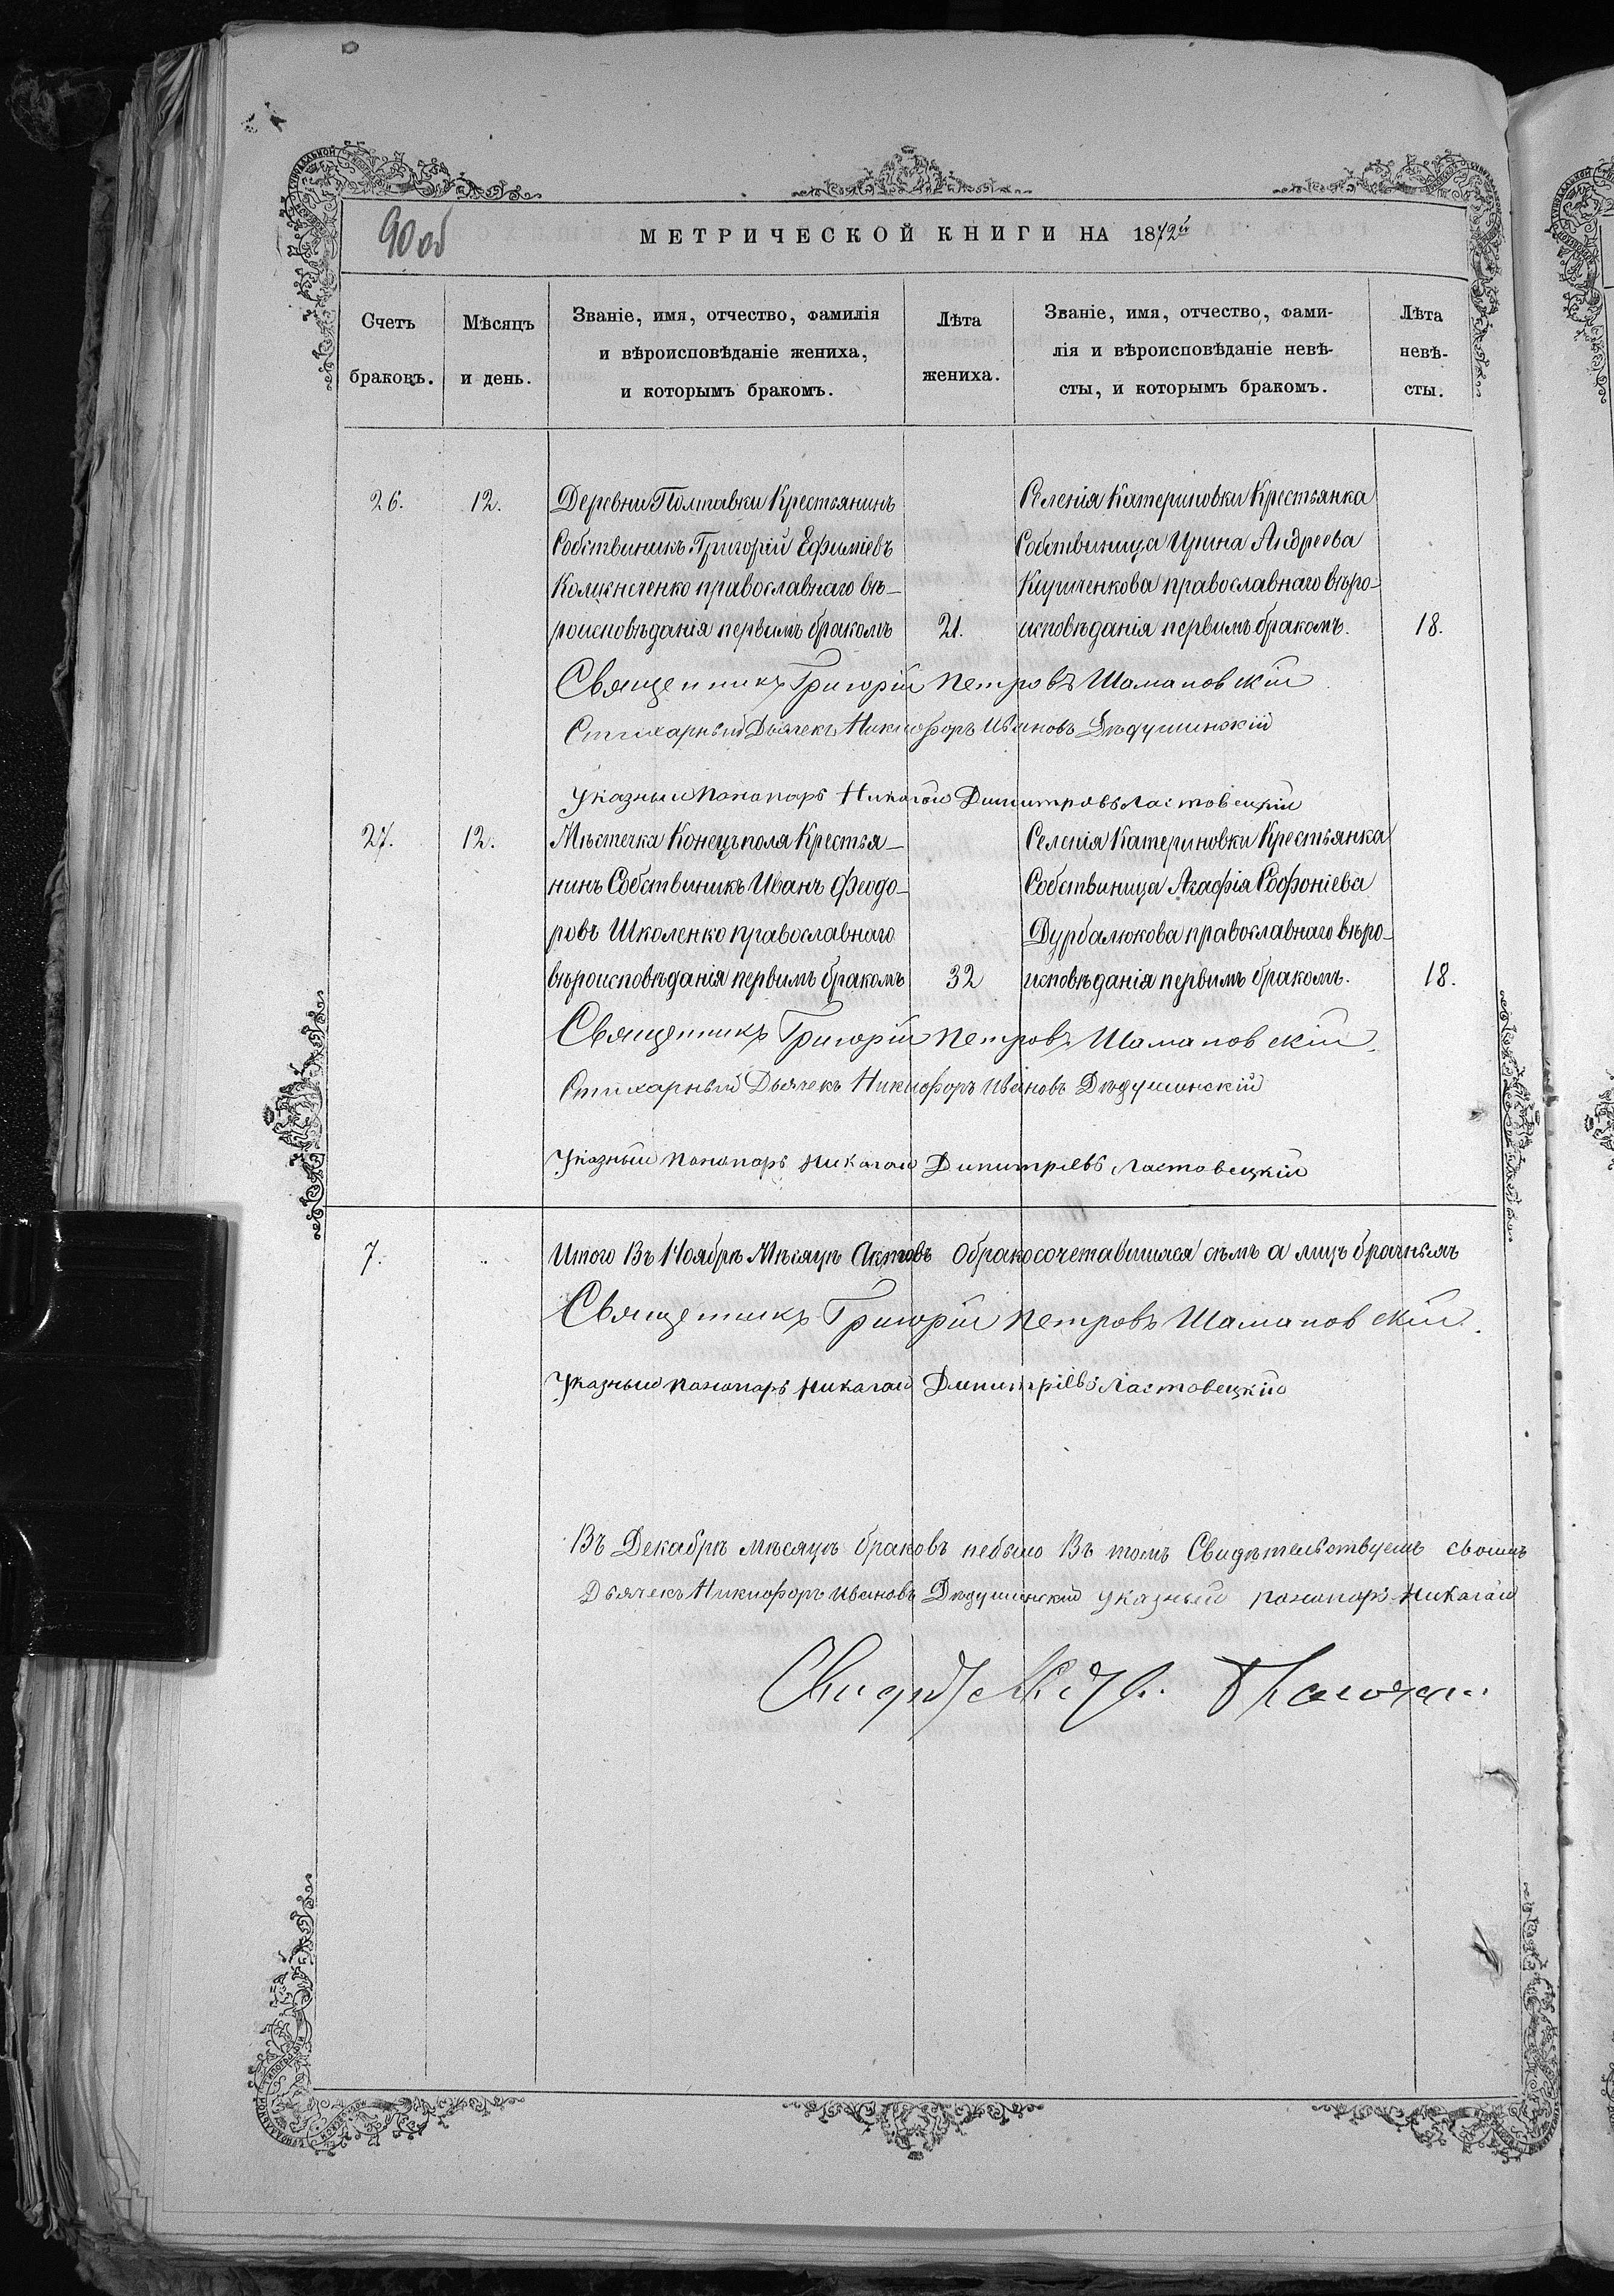 90 об
МЕТРИЧЕСКОЙ КНИГИ НА 1872й
Счетъ браковъ.
Мѣсяцъ и день.
Званіе, имя, отчество, фамилія
и вѣроисповѣданіе жениха,
и которымъ бракомъ.
Лѣта
жениха.
Званіе, имя, отчество, фами-
лія и вѣроисповѣданіе невѣ-
сты, и которымъ бракомъ.
Лѣта
невѣ-
сты.
26.
12.
Деревни Полтавки Крестьянинъ
Собствиникъ Григорій Ефиміевъ
православнаго вѣ-
роисповѣданія первимъ бракомъ
21.
Селенія Катериновки Крестьянка
Собствиница Ирина Андреева
Кириченкова православнаго вѣро-
исповѣданія первимъ бракомъ.
18.
Священникъ Григорій Петровъ Шомановскій
Стихарный Дьячекъ Никифоръ Ивановъ Дѣдушинскій
Указный Пономарь Николай Димитровъ Ластовецкій
27.
12.
Мѣстечка Конецъполя Крестья-
нинъ Собствиникъ Иванъ Феодо-
ровъ Школенко православнаго
вѣроисповѣданія первимъ бракомъ
32
Селенія Катериновки Крестьянка
Собствиница Агафія Софоніева
Дурбалюкова православнаго вѣро-
исповѣданія первимъ бракомъ.
18.
Священникъ Григорій Петровъ Шомановскій.
Стихарный Дьячекъ Никифоръ Ивановъ Дѣдушинскій
Указный Пономарь Николай Димитріевъ Ластовецкій
7.
Итого Въ Ноябрѣ Мѣсяцѣ Актовъ Обракосочетавшихся семъ а лицъ брачнымъ
Священникъ Григорій Петровъ Шомановскій.
Указный пономарь Николай Димитріевъ Ластовецкій
Въ Декабрѣ мѣсяцѣ браковъ небыло Въ томъ Свидѣтельствуемъ
Дьячекъ Никифоръ Ивановъ Дѣдушинскій указный пономарь Николай